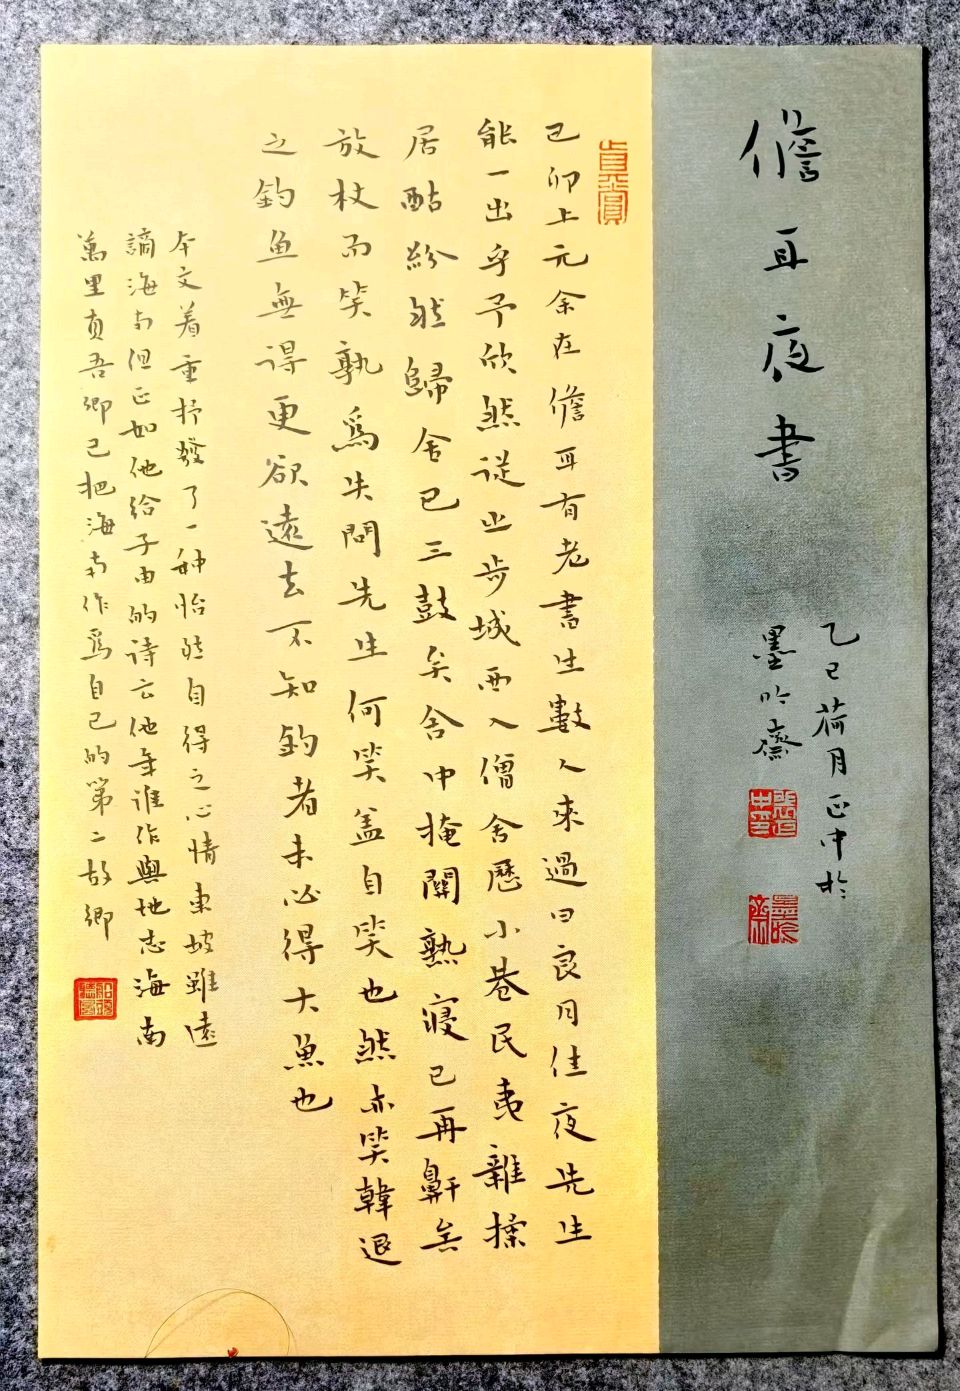 儋耳夜書
乙巳荷月正中於
墨吟齋
己卯上元余在儋耳有老書生數人來過曰良月佳夜先生
能一出乎予欣然從之步城西入僧舍歷小巷民夷雜揉
屠酤紛然歸舍已三鼓矣舍中掩關熟寢已再鼾矣
放杖而笑孰爲失問先生何笑盖自笑也然亦笑韓退
之釣魚無得更欲遠去不知釣者未必得大魚也
本文着重抒發了一种怡然自得之心情東坡雖遠
謫海南但正如他給子由的诗云他年誰作輿地志海南
萬里真吾鄉已把海南作爲自己的第二故鄉